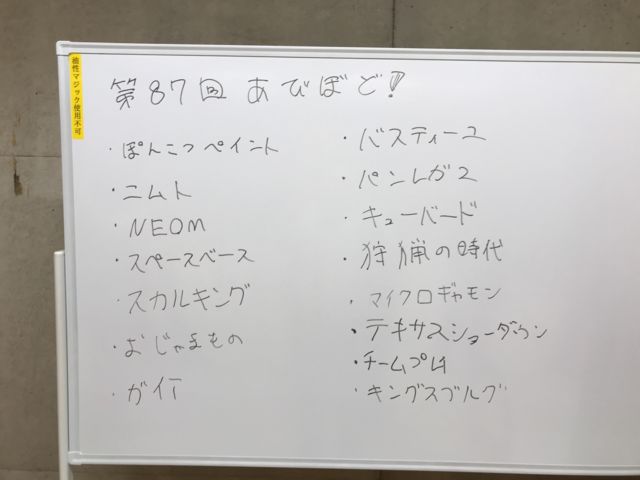 油性マジック使用不可
第87回 あびぼど!
・ぽんこつペイント
・ニムト
・NEOM
・スペースベース
・スカルキング
・おじゃまもの
・ガイア
・バスティーユ
・パンレガス
・キューバード
・狩猟の時代
・マイクロギャモン
・テキサスショーダウン
・チームプレイ
・キングスブルグ